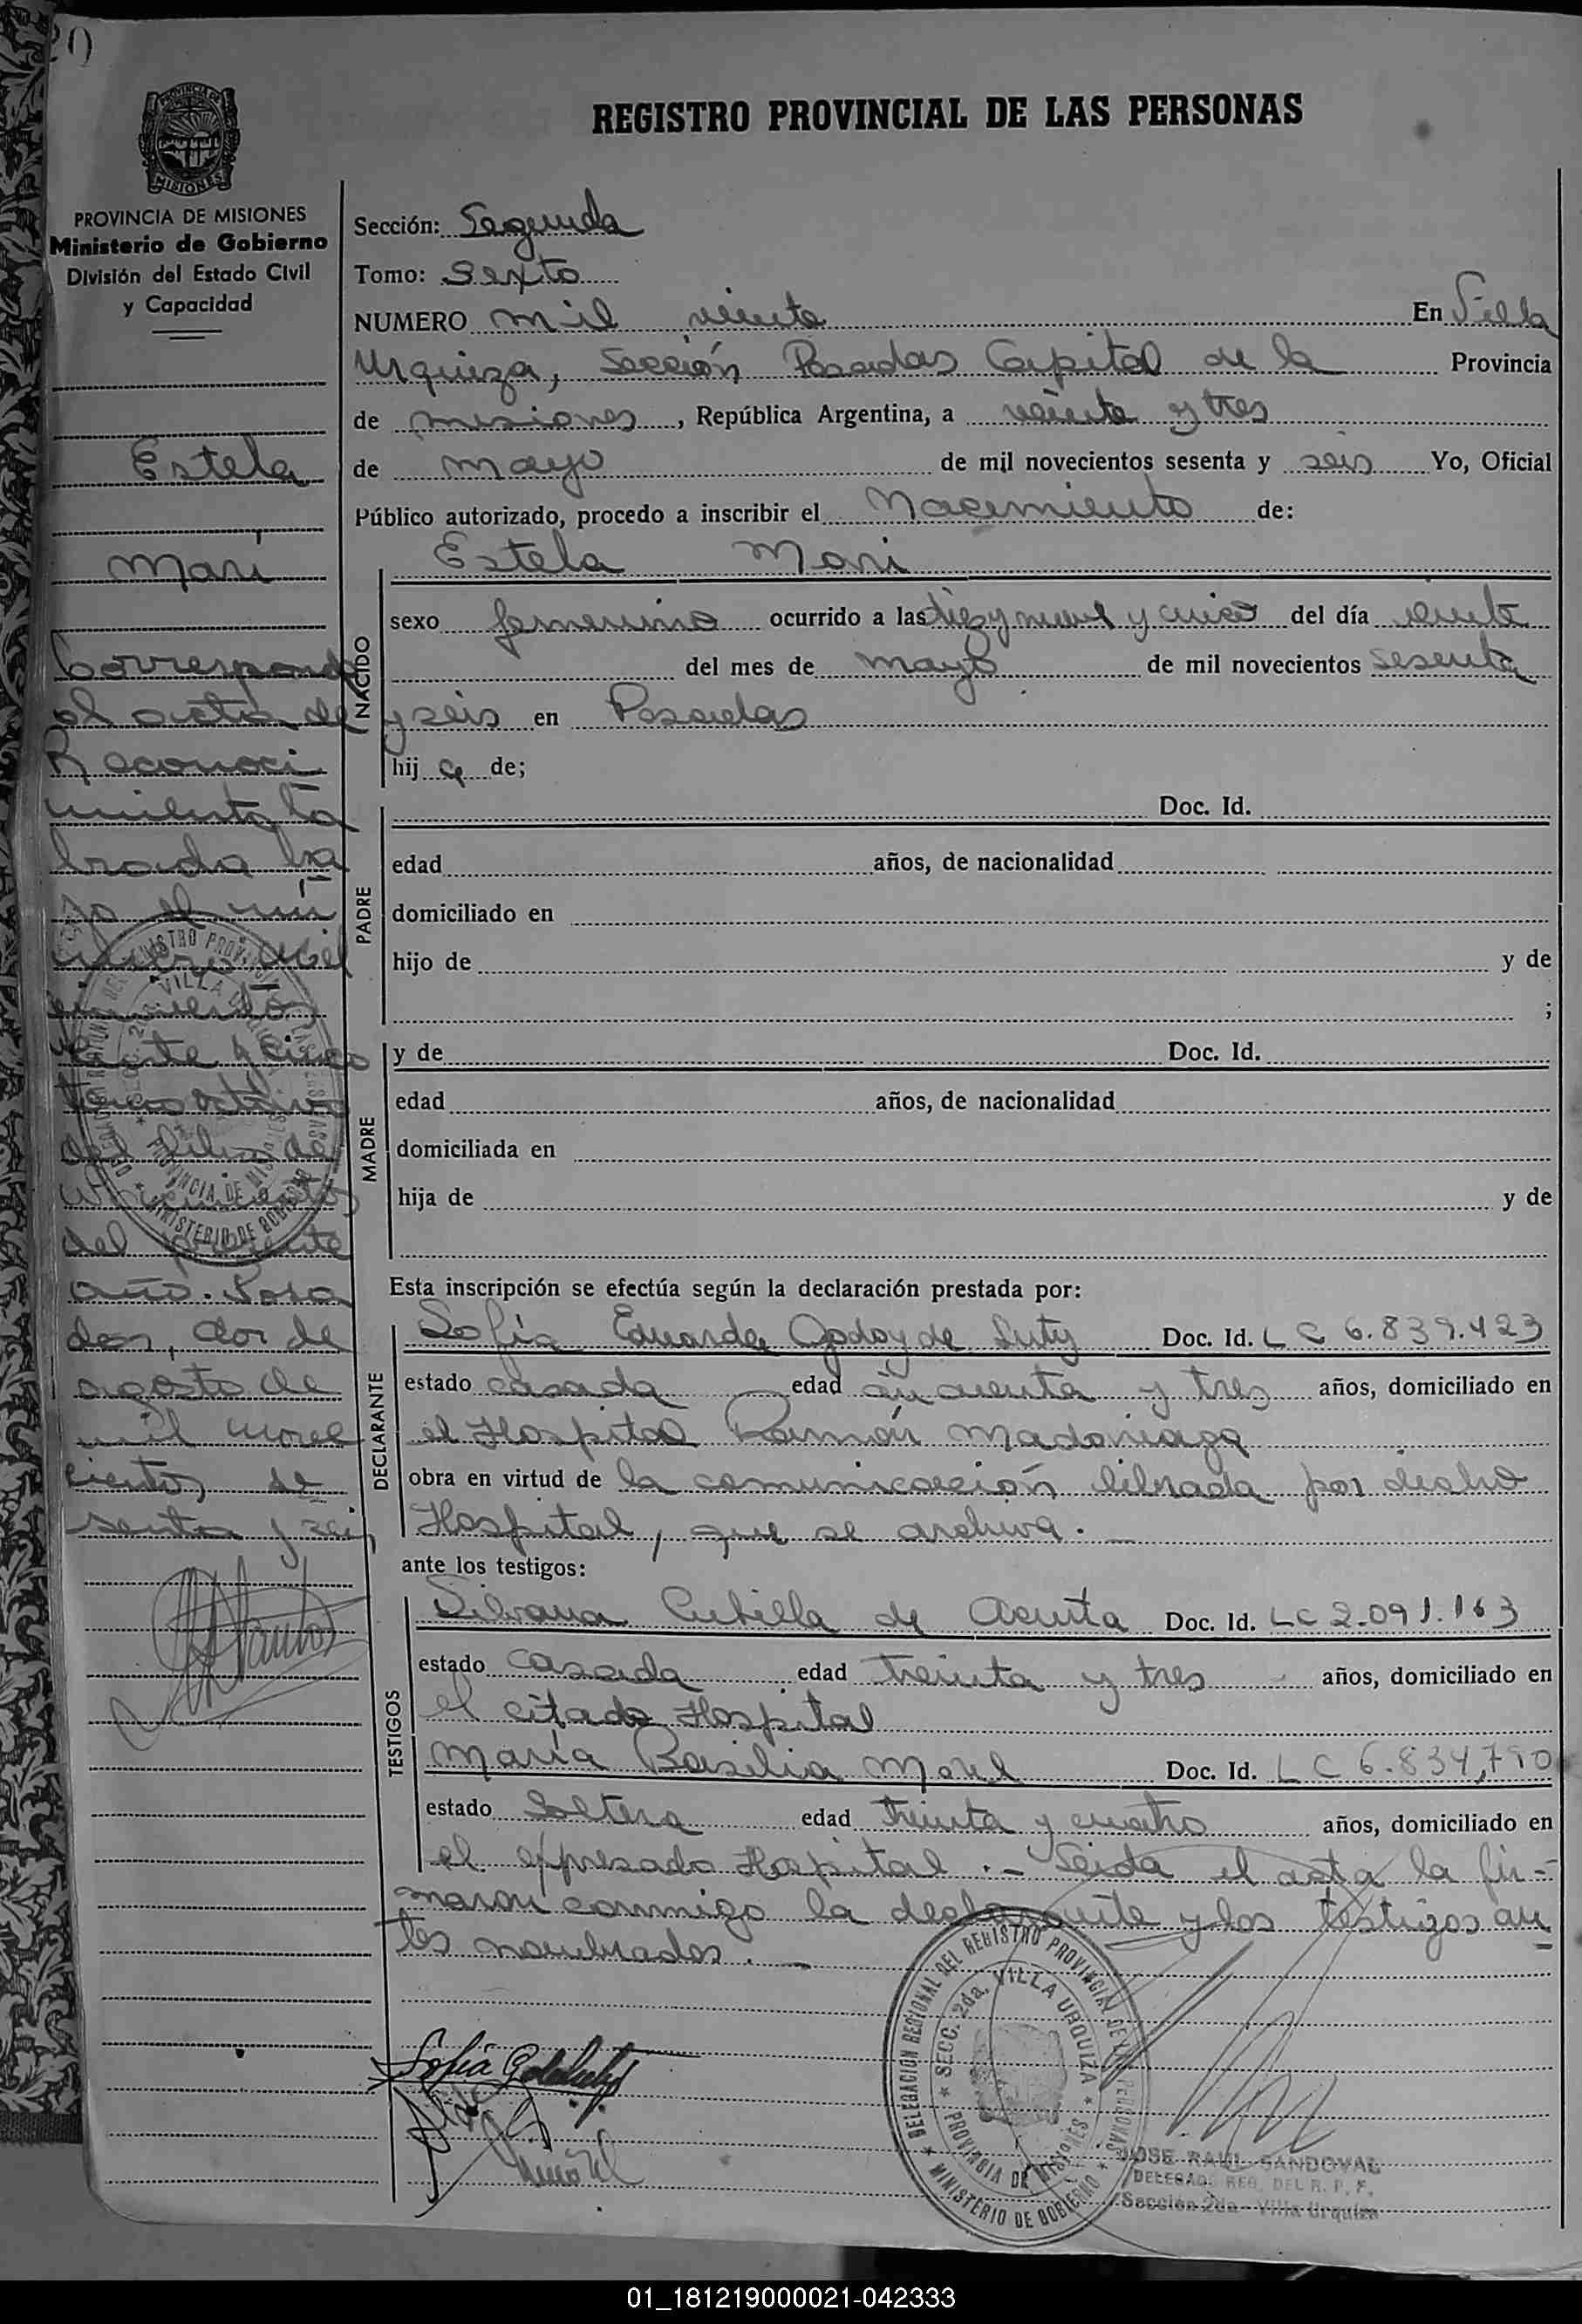 20
REGISTRO PROVINCIAL DE LAS PERSONAS
PROVINCIA DE MISIONES
Ministerio de Gobierno
División del Estado Civil
y Capacidad
Estela
Mari
Corresponde
al acta de
Reconoci
miento la
brada ba
jo el nú
mero mil
ciento
y cinco
tomo octavo
del libro de
del presente
año. Posa
das, dos de
agosto de
mil nove
cientos se
senta y seis
Sección: Segunda
Tomo: Sexto
NUMERO mil veinte En Villa
Urquiza, Sección Posadas Capital de la Provincia
de misiones, República Argentina, a veinte y tres
de mayo de mil novecientos sesenta y seis Yo, Oficial
Público autorizado, procedo a inscribir el Nacimiento de:
NACIDO
Estela Mari
sexo femenino ocurrido a las diez y nueve y cinco del día veinte
del mes de mayo de mil novecientos sesenta
y seis en Posadas
hij a de;
PADRE
Doc. Id.
edad años, de nacionalidad
domiciliado en
hijo de y de
;
MADRE
y de Doc. Id.
edad años, de nacionalidad
domiciliada en
hija de y de
Esta inscripción se efectúa según la declaración prestada por:
DECLARANTE
Sofía Eduarda Godoy de Luty Doc. Id. L C 6.839.423
estado casada edad cincuenta y tres años, domiciliado en
el Hospital Ramón Madariaga
obra en virtud de la comunicación librada por dicho
Hospital, que se archiva.
ante los testigos:
TESTIGOS
Silvana Cubilla de Acuña Doc. Id. LC 2.091.163
estado casada edad treinta y tres años, domiciliado en
el citado Hospital
María Basilia Morel Doc. Id. L C 6.834,790
estado Soltera edad treinta y cuatro años, domiciliado en
el expresado Hospital.- Leída el acta la fir-
maron conmigo la declarante y los testigos an
tes nombrados.
DELEGACION REGIONAL DEL REGISTRO PROVINCIAL DE LAS PERSONAS
SECC. 2da. VILLA URQUIZA
PROVINCIA DE MISIONES
MINISTERIO DE GOBIERNO
JOSE RAUL SANDOVAL
DELEGADO REG. DEL R. P. P.
Sección 2da - Villa Urquiza
01_181219000021-042333